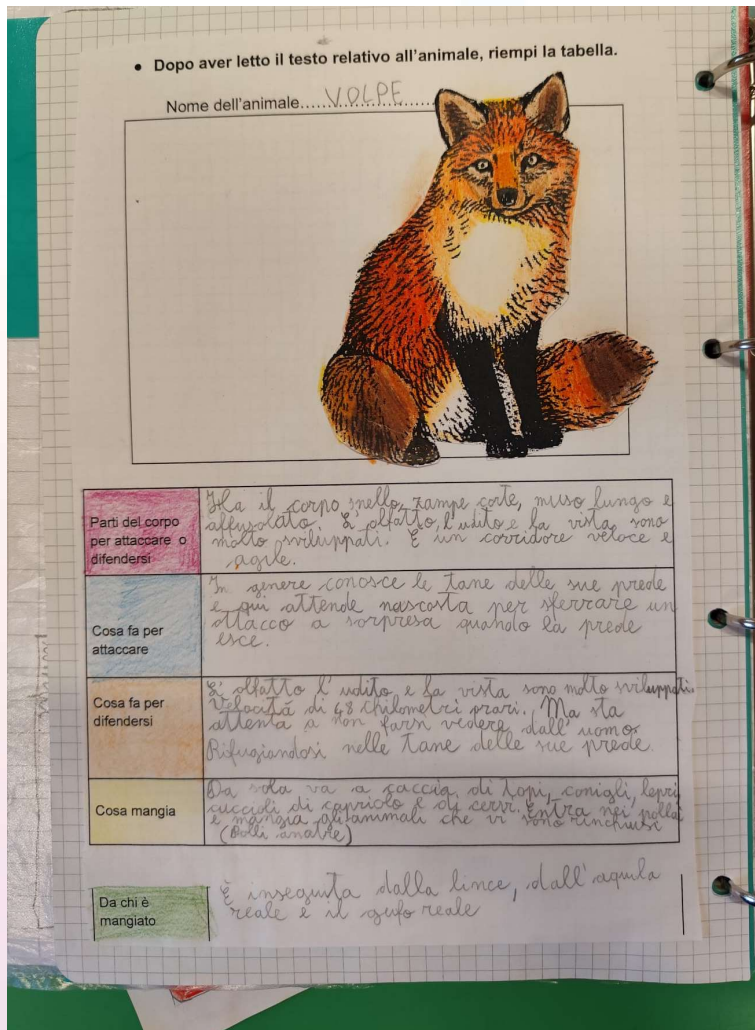 • Dopo aver letto il testo relativo all'animale, riempi la tabella.
Nome dell'animale.....VOLPE.....
Parti del corpo
per attaccare o
difendersi
Ha il corpo snello, zampe corte, muso lungo e
affusolato. L'olfatto, l'udito e la vista sono
molto sviluppati. È un corridore veloce e
agile.
Cosa fa per
attaccare
In genere conosce le tane delle sue prede
e qui attende nascosta per sferrare un
attacco a sorpresa quando la prede
esce.
Cosa fa per
difendersi
L'olfatto l'udito e la vista sono molto sviluppati.
Velocitá di 48 chilometri orari. Ma sta
attenta a non farsi vedere dall'uomo
Rifugiandosi nelle tane delle sue prede.
Cosa mangia
Da sola va a caccia di topi, conigli, lepri
cuccioli di capriolo e di cervi. Entra nei pollai
e mangia gli animali che vi sono rinchiusi
(Polli anatre)
Da chi è
mangiato
È inseguita dalla lince, dall'aquila
reale e il gufo reale